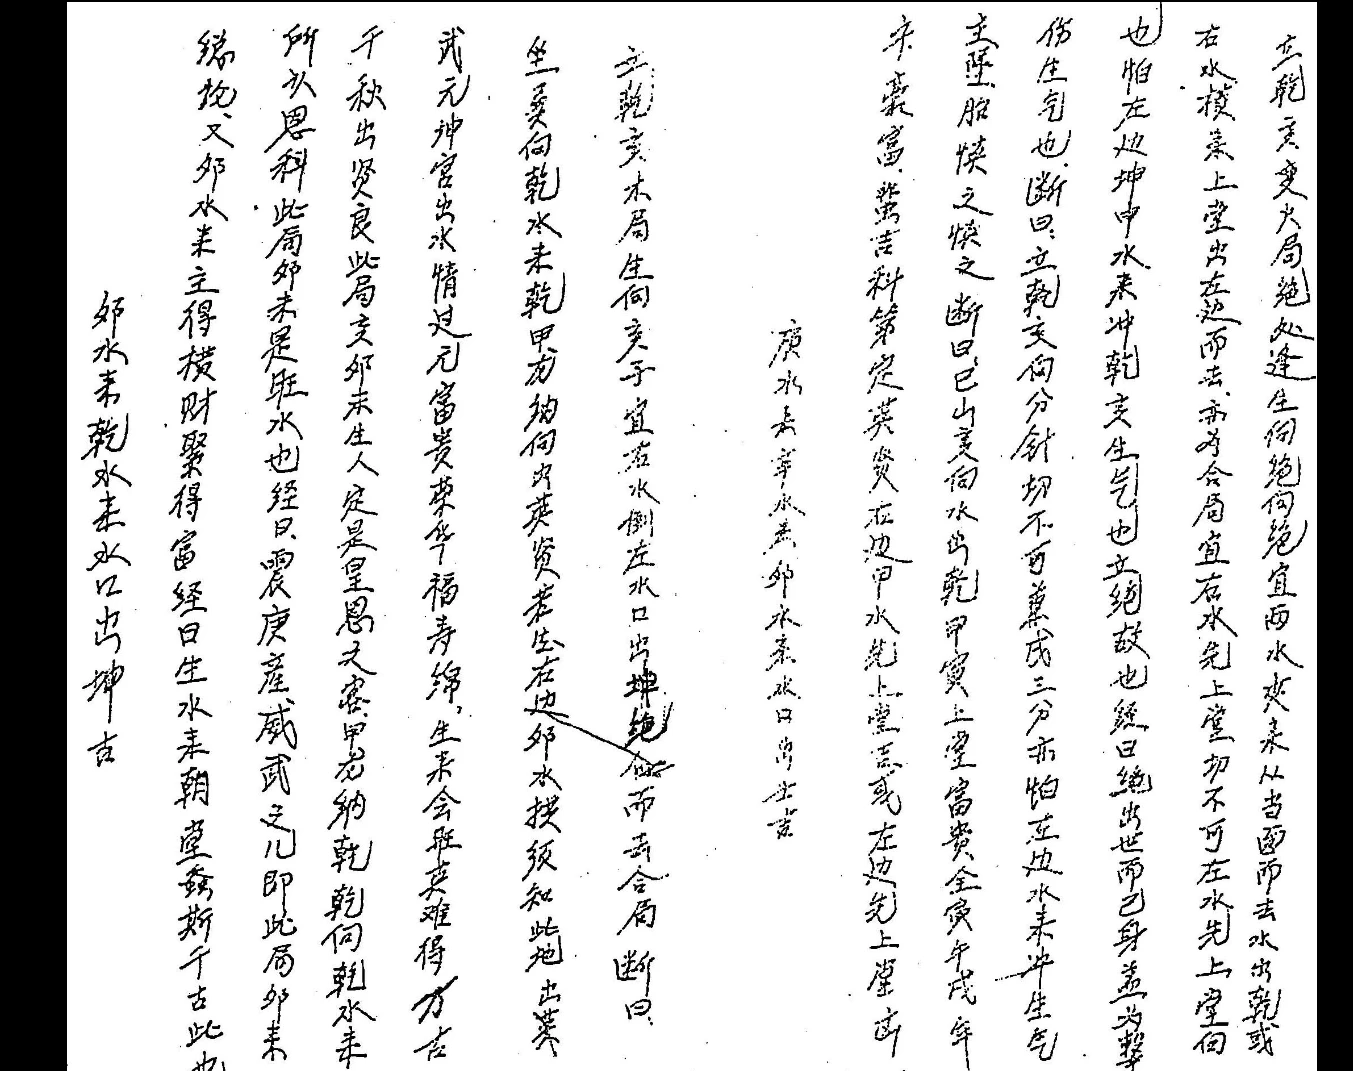 立乾亥变火局绝处逢生向绝向绝宜两水夹来从当面而去水出乾或
右水横来上堂出左边而去亦为合局宜右水先上堂切不可左水先上堂向
也怕左边坤申水来冲乾亥生气也立绝故也经曰绝出世而已身益为擊
伤生气也断曰立乾亥向分针切不可兼戌三分亦怕左边水来冲生气
主堕胎慎之慎之断曰巳山亥向水出乾甲寅上堂富贵全寅午戌年
富蜚吉科第定英贤右边甲水先上堂吉或左边先上堂凶
水来水来卯水来水口出吉
立乾亥木局生向亥子宜右水倒左水口出坤绝而去合局断曰
坐巽向乾水来乾甲龙纳向出英贤若出右边卯水横须知此地出英
武元坤宫出水情过元富贵荣华福寿绵生来会旺英难得方吉
千秋出贤良此局亥卯未生人定是皇恩大客甲龙纳乾乾向乾水来
所以恩科此局卯未是旺水也经曰震庚产威武之儿即此局卯来
又卯水来主得横财聚得富经曰生水来朝堂螽斯千古此也
卯水来乾水来水口出坤吉